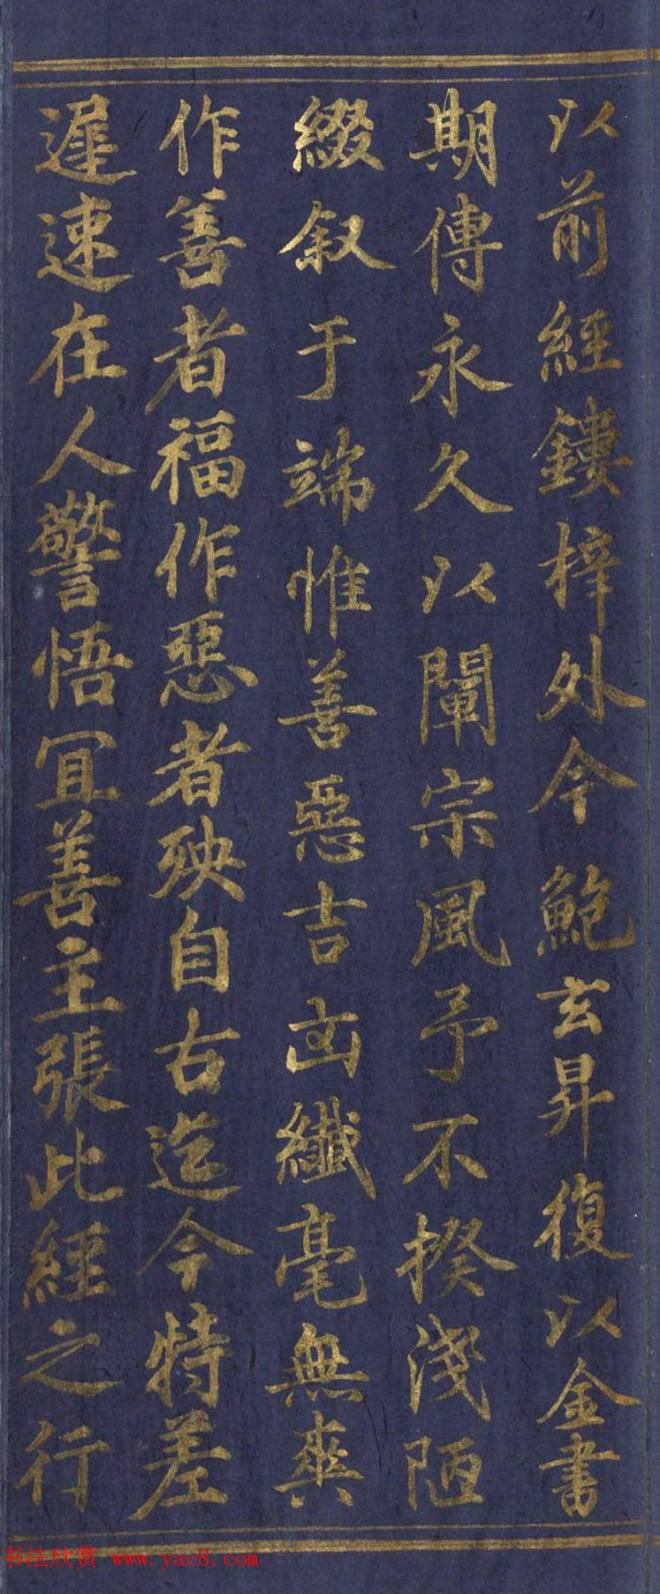 以前經鏤梓外今鮑玄昇復以金書
期傳永久以闡宗風予不揆淺陋
綴叙于端惟善惡吉凶纖毫無爽
作善者福作惡者殃自古迄今特差
遲速在人警悟冝善主張此經之行
书法欣赏 www.yac8.com